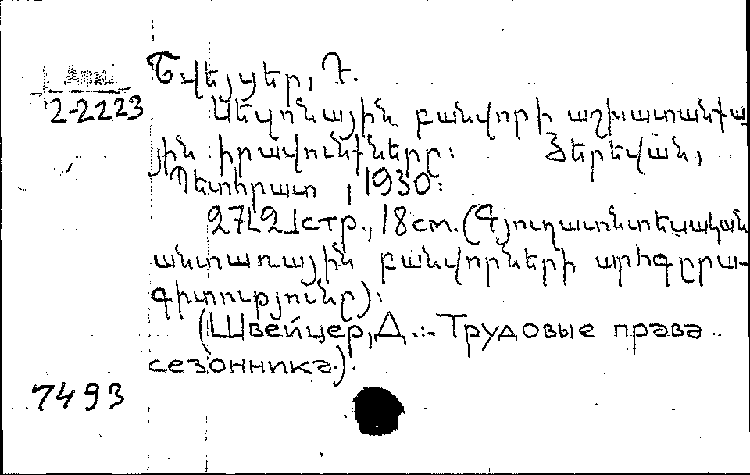 Շվեյցեր, Դ.
2-2223
Սեզոնային բանվորի աշխատանքա
յին իրավունքները: Յերեվան,
Պետհրատ, 1930:
27[2]стр., 18 см. (Գյուղատնտեսական
անտառային բանվորների
գիտությունը):
(Швейцер, Д. :- Трудовые права
сезонника).
7493